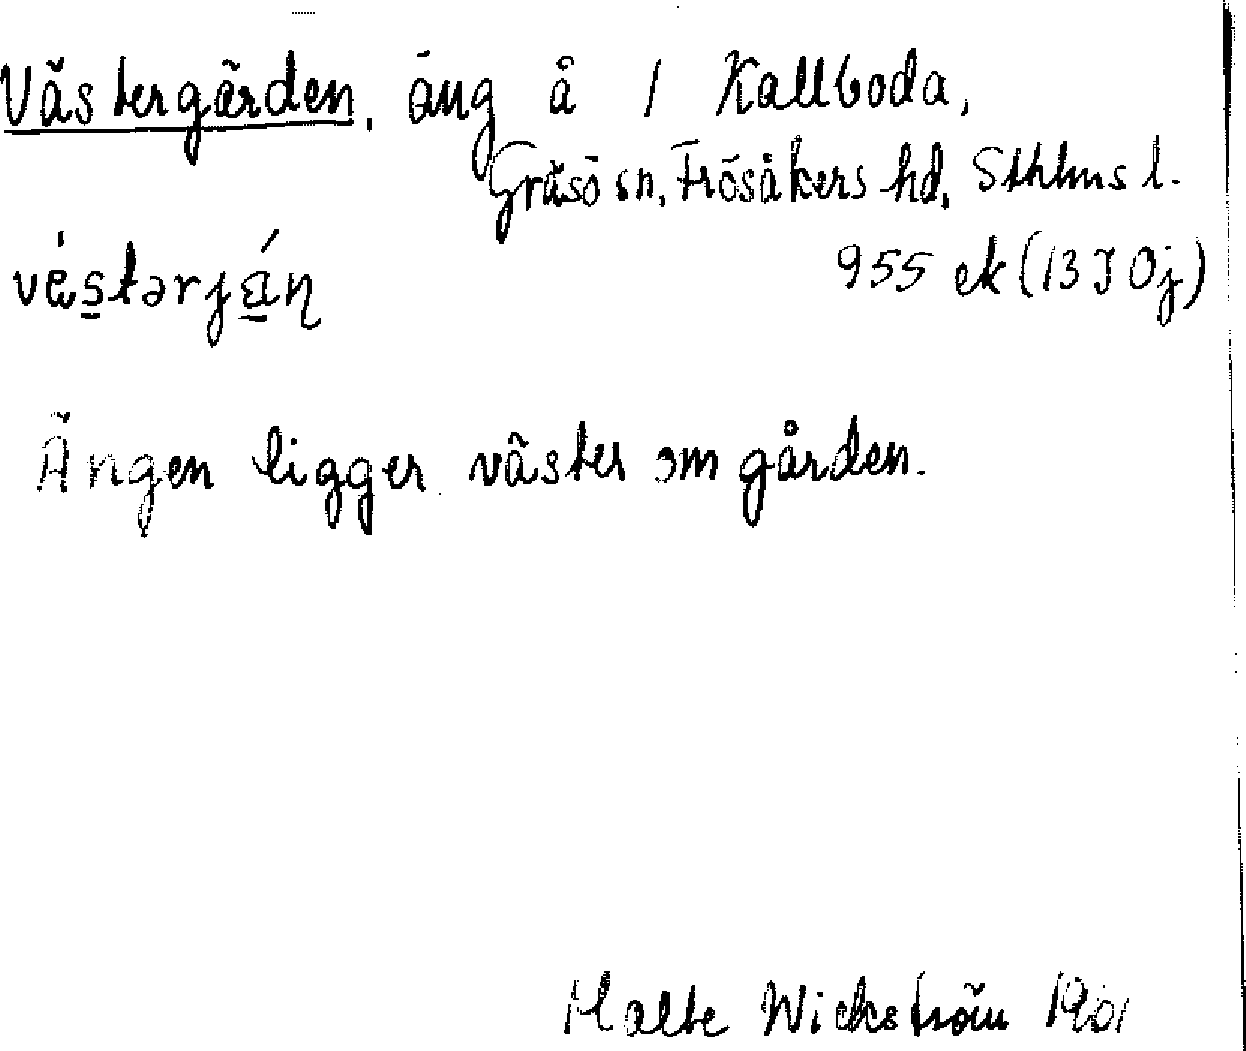 Västergärden, äng å 1 Kallboda,
Gräsö sn, Frösåkers hd, Sthlms l.
955 ek (13 I 0j)
Ängen ligger väster om gården.
Malte Wickström 1961